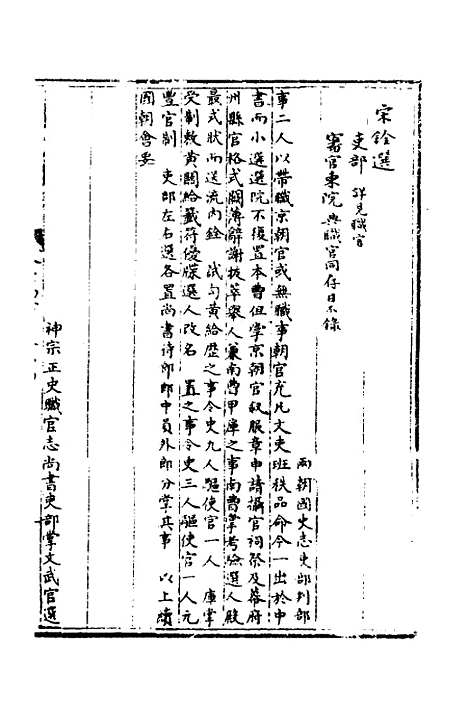 宋銓選
吏部 詳見職官
審官東院 與職官同存目不錄
兩朝國史志吏部判部
事二人以帶職京朝官或無職事朝官充凡文吏班秩品命令一出於中
書而小選選院不復置本曹但掌京朝官叙服章申請攝官祠祭及幕府
州縣官格式闕簿辭謝拔萃舉人兼南曹甲庫之事南曹掌考驗選人殿
最式狀而送流內銓 試勾黃給歷之事令史九人驅使官一人 庫掌
受制敕黃關給籤符優牒選人改名 置之事令史三人驅使官一人元
豐官制 吏部左右選各置尚書侍郎郎中員外郎分掌其事 以上續
國朝會要
神宗正史職官志尚書吏部掌文武官選